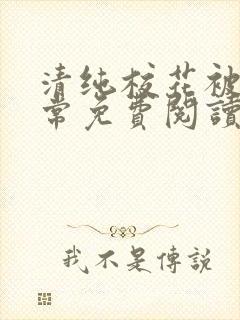 清纯校花被
常免費閱讀
我不是傳説